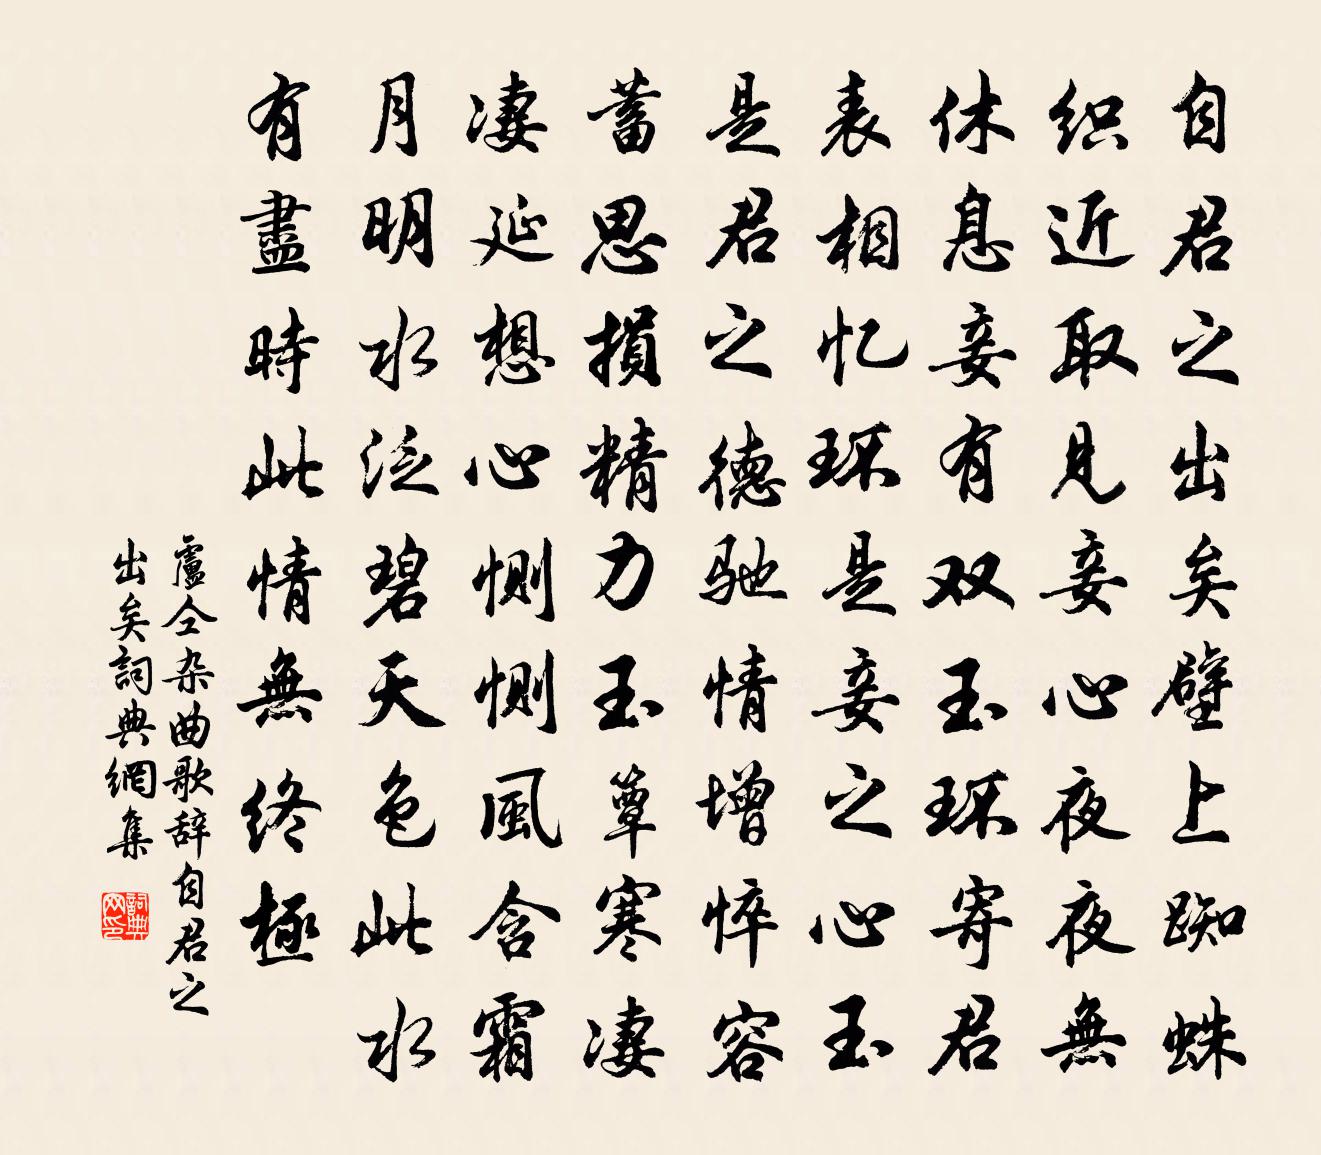 自君之出矣壁上踟蛛
织近取见妾心夜夜無
休息妾有双玉环寄君
表相忆环是妾之心玉
是君之德驰情增悴容
蓄思损精力玉簟寒凄
凄延想心恻恻風含霜
月明水泛碧天色此水
有盡時此情無终極
盧仝杂曲歌辞自君之
出矣詞典網集
詞典网印